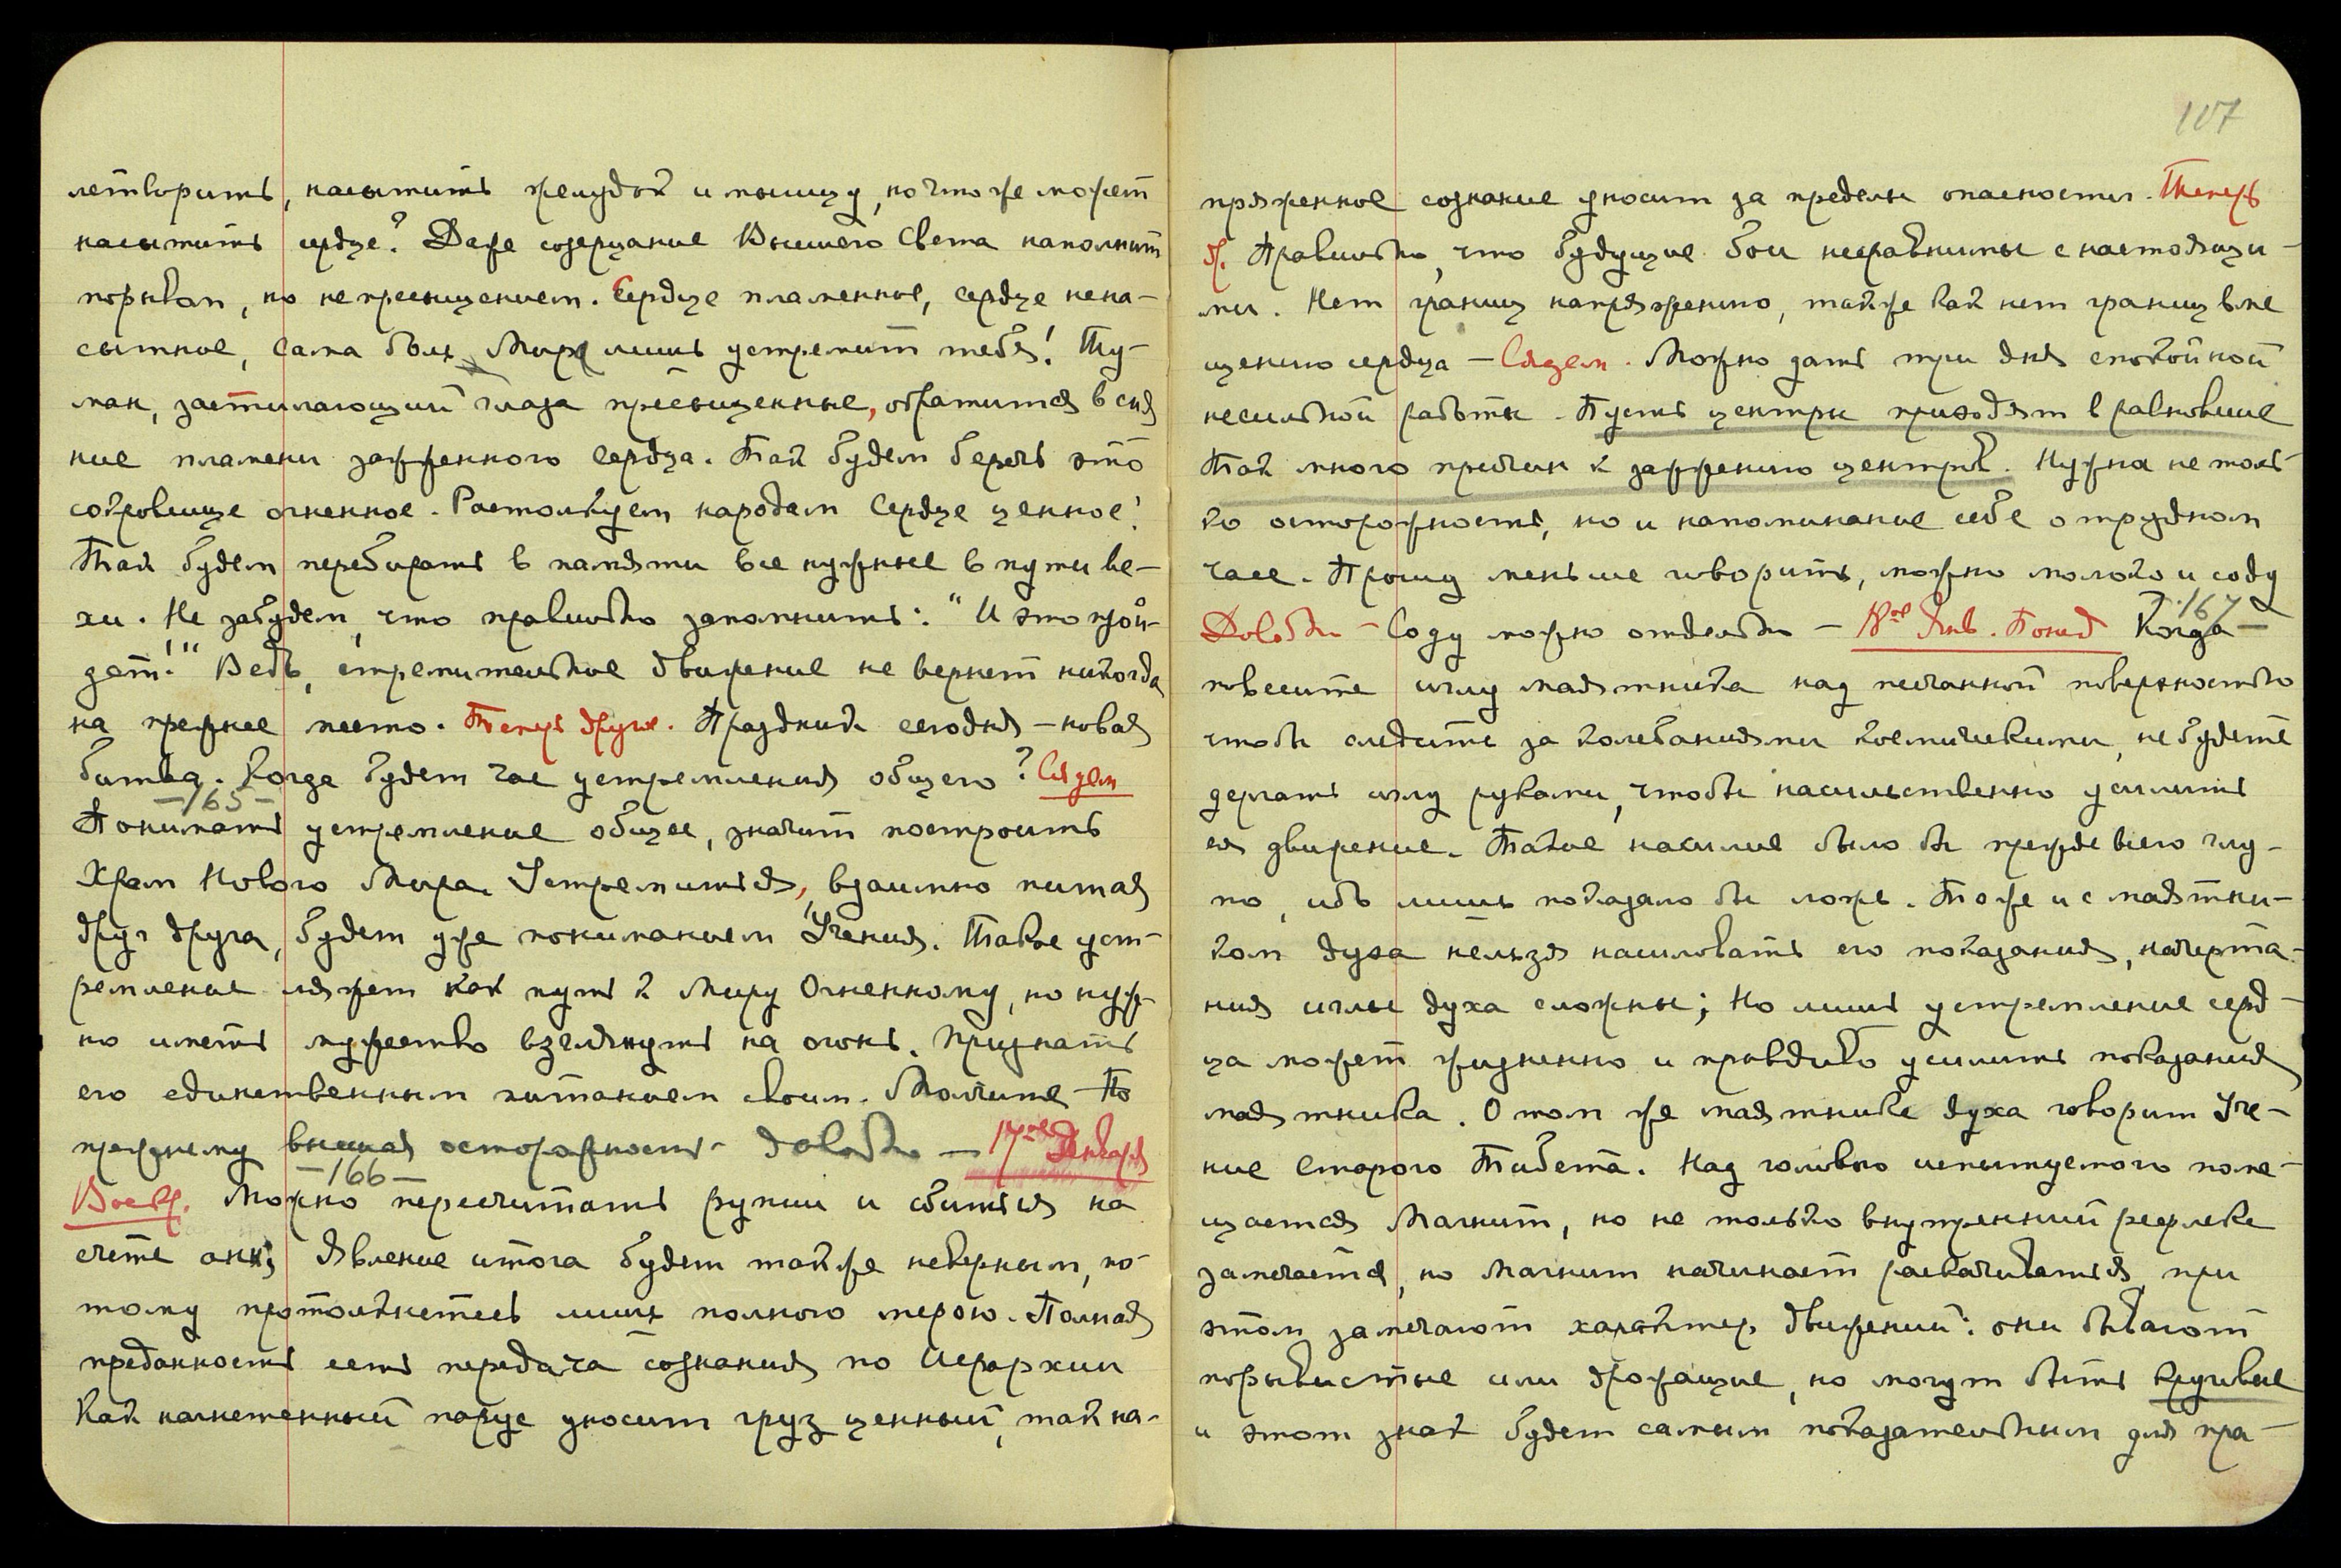 летворить, насытить желудок и мышцу, но что же может
насытить сердце? Даже созерцание Высшего Света наполнит
порывом, но не пресыщением. Сердце пламенное, сердце нена-
сытное, сама боль Мира лишь устремит тебя! Ту-
ман, застилающий глаза пресыщенные, обратится в сия
ние пламени зажженного сердца. Так будем беречь это
сокровище огненное. Растолкуем народам Сердце ценное!
Так будем перебирать в памяти все нужные в пути ве-
хи. Не забудем, что правильно запомнить: "И это прой-
дет!" Ведь, стремительное движение не вернет никогда
на прежнее место. Теперь другое. Праздник сегодня – новая
битва. Когда будет час устремления общего? Сядем
–165–
Понимать устремление общее, значит построить
Храм Нового Мира. Устремиться, взаимно питая
друг друга, будет уже пониманием Учения. Такое уст-
ремление ляжет как путь к Миру Огненному, но нуж-
но иметь мужество взглянуть на огонь. Признать
его единственным питанием своим. Молчите – По
прежнему внешняя осторожность – довольно – 17ое Января
–166–
Воскр. Можно пересчитать рупии и сбиться на
счете анн; Явление итога будет также неверным, по-
тому протолкнетесь лишь полного мерою. Полная
преданность есть передача сознания по Иерархии
Как нагнетенный парус уносит груз ценный, так на-
107
пряженное сознание уносит за пределы опасности. Теперь
др. Правильно, что будущие бои несравнимы с настоящи-
ми. Нет границ напряжению, также как нет границ вме
щению сердца – Сядем. Можно дать три дня спокойной
несильной работы. Пусть центры приходят в равновесие
Так много причин к зажжению центров. Нужна не толь-
ко осторожность, но и напоминание себе о трудном
часе. Прошу меньше говорить, можно молоко и соду
Довольно – Соду можно отдельно – 18ое Янв. Понед
–167–
Когда
повесите иглу маятника над песчаной поверхностью
чтобы следить за колебаниями космическими, не будете
дергать иглу руками, чтобы насильственно усилить
ея движение. Такое насилие было бы прежде всего глу-
по, ибо лишь показало бы ложь. То же и с маятни-
ком духа нельзя насиловать его показания, начерта-
ния иглы духа сложны; Но лишь устремление серд-
ца может жизненно и правдиво усилить показания
маятника. О том же маятнике духа говорит Уче-
ние старого Тибета. Над головою испытуемого поме-
щается Магнит, но не только внутренний рефлекс
замечается, но Магнит начинает раскачиваться, при
этом замечают характер движений: они бывают
порывистые или дрожащие, но могут быть круговые
и этот знак будет самым показательным для пра-